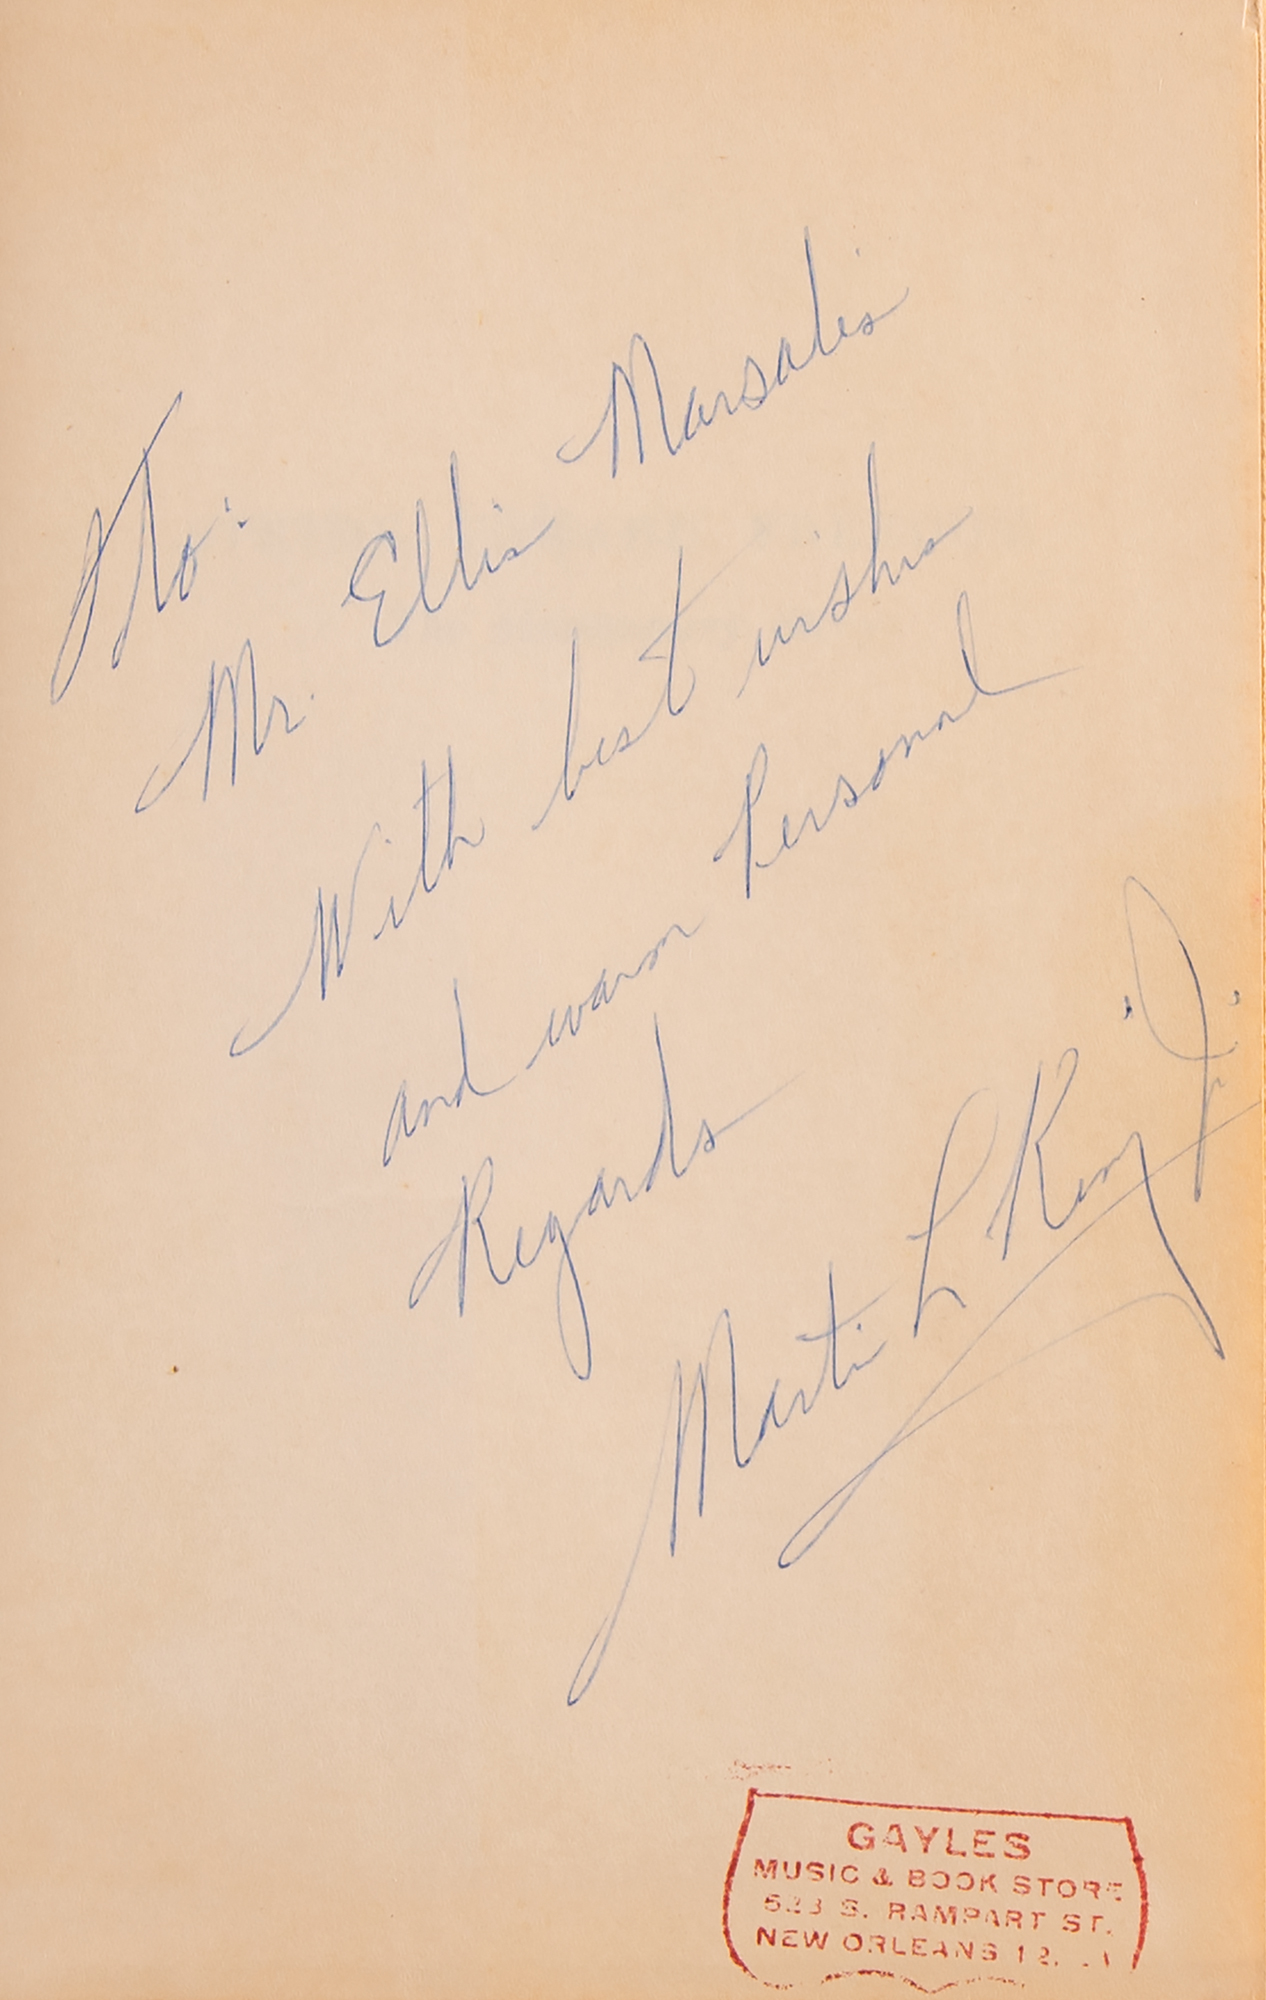 To:
Mr. Ellis Marsalis
With best wishes
and warm Personal
Regards
Martin L. King, Jr.
GAYLES
MUSIC & BOOK STORE
S. RAMPART ST.
NEW ORLEANS 12,